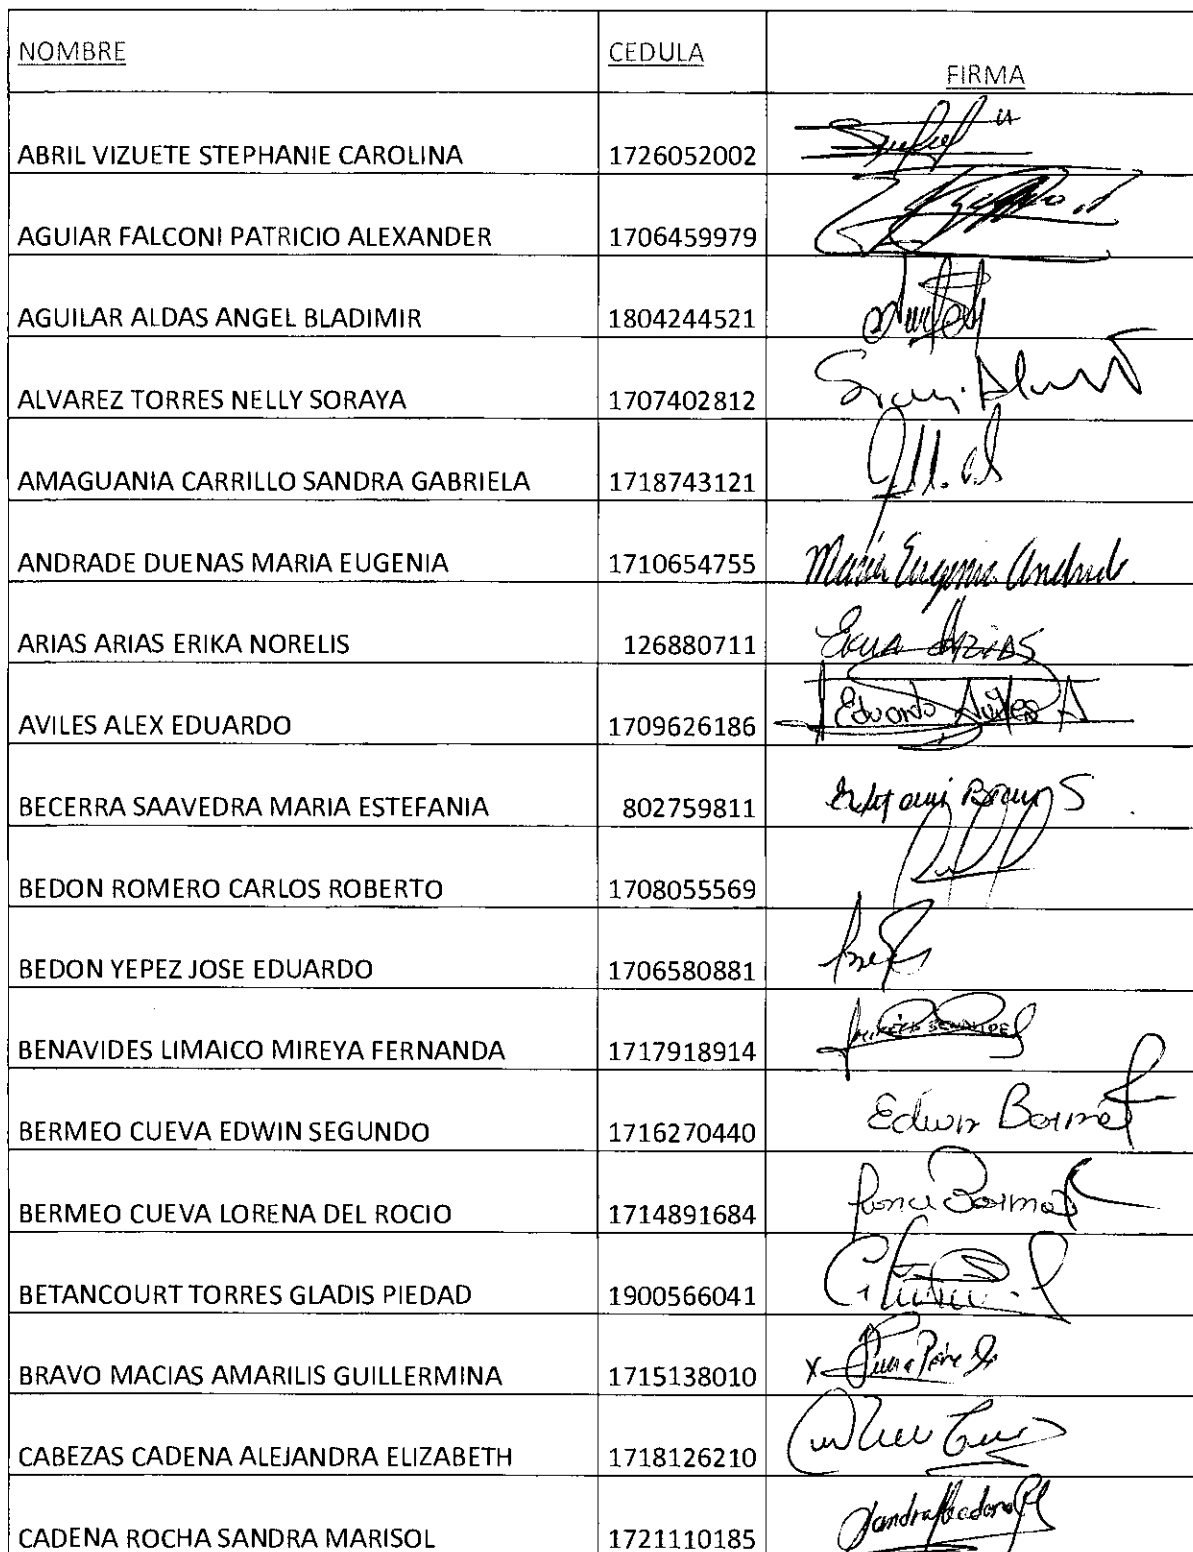 NOMBRE CEDULA FIRMA
ABRIL VIZUETE STEPHANIE CAROLINA 1726052002
AGUIAR FALCONI PATRICIO ALEXANDER 1706459979
AGUILAR ALDAS ANGEL BLADIMIR 1804244521
ALVAREZ TORRES NELLY SORAYA 1707402812
AMAGUANIA CARRILLO SANDRA GABRIELA 1718743121
ANDRADE DUENAS MARIA EUGENIA 1710654755 Maria Eugenia Andrade
ARIAS ARIAS ERIKA NORELIS 126880711 Erika Arias
AVILES ALEX EDUARDO 1709626186 Eduardo Aviles A
BECERRA SAAVEDRA MARIA ESTEFANIA 802759811
BEDON ROMERO CARLOS ROBERTO 1708055569
BEDON YEPEZ JOSE EDUARDO 1706580881
BENAVIDES LIMAICO MIREYA FERNANDA 1717918914
BERMEO CUEVA EDWIN SEGUNDO 1716270440 Edwin Bermeo
BERMEO CUEVA LORENA DEL ROCIO 1714891684
BETANCOURT TORRES GLADIS PIEDAD 1900566041
BRAVO MACIAS AMARILIS GUILLERMINA 1715138010 x
CABEZAS CADENA ALEJANDRA ELIZABETH 1718126210
CADENA ROCHA SANDRA MARISOL 1721110185